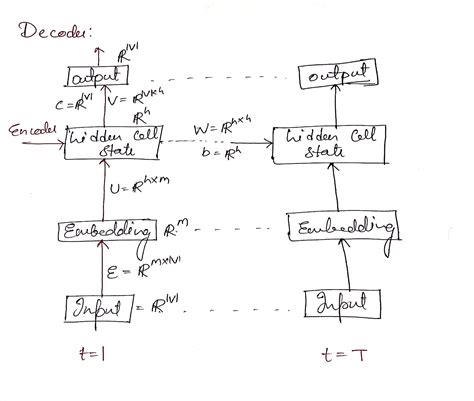 Decoder:
ℝ^|V|
output
output
C = ℝ^|V|
V = ℝ^V×h
ℝ^h
Encoder
hidden Cell
State
W = ℝ^h×h
b = ℝ^h
hidden Cell
State
U = ℝ^h×m
Embedding
ℝ^m
Embedding
E = ℝ^m×|V|
Input
= ℝ^|V|
Input
t=1
t=T